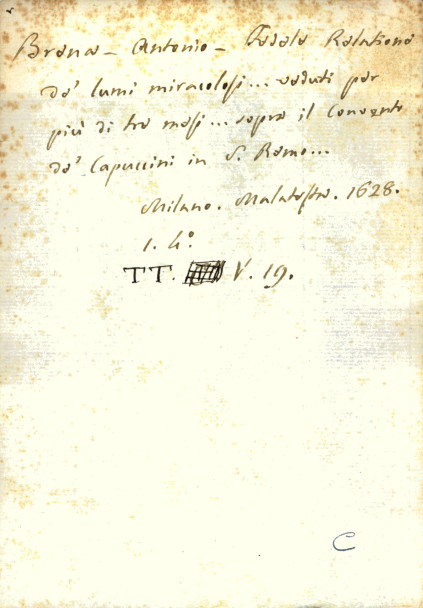 Brena - Antonio - Fedele Relatione
de' lumi miracolosi... veduti per
più di tre mesi... sopra il Convento
de' Capuccini in S. Remo...
Milano. Malatesta. 1628.
1. 4°.
TT. V. 19.
C